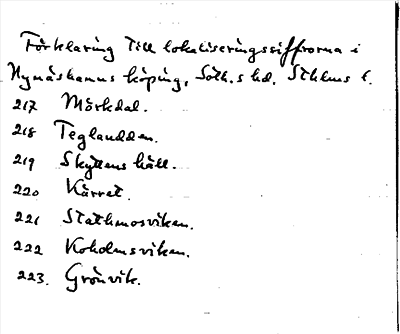 Förklaring till lokaliseringssiffrorna i
Nynäshamns köping, Soth.s hd, Sthlms l.
217 Mörkdal.
218 Tegludden.
219 Skyttens häll.
220 Kärret.
221 Stathmosviken.
222 Koholmsviken.
223. Grönvik.